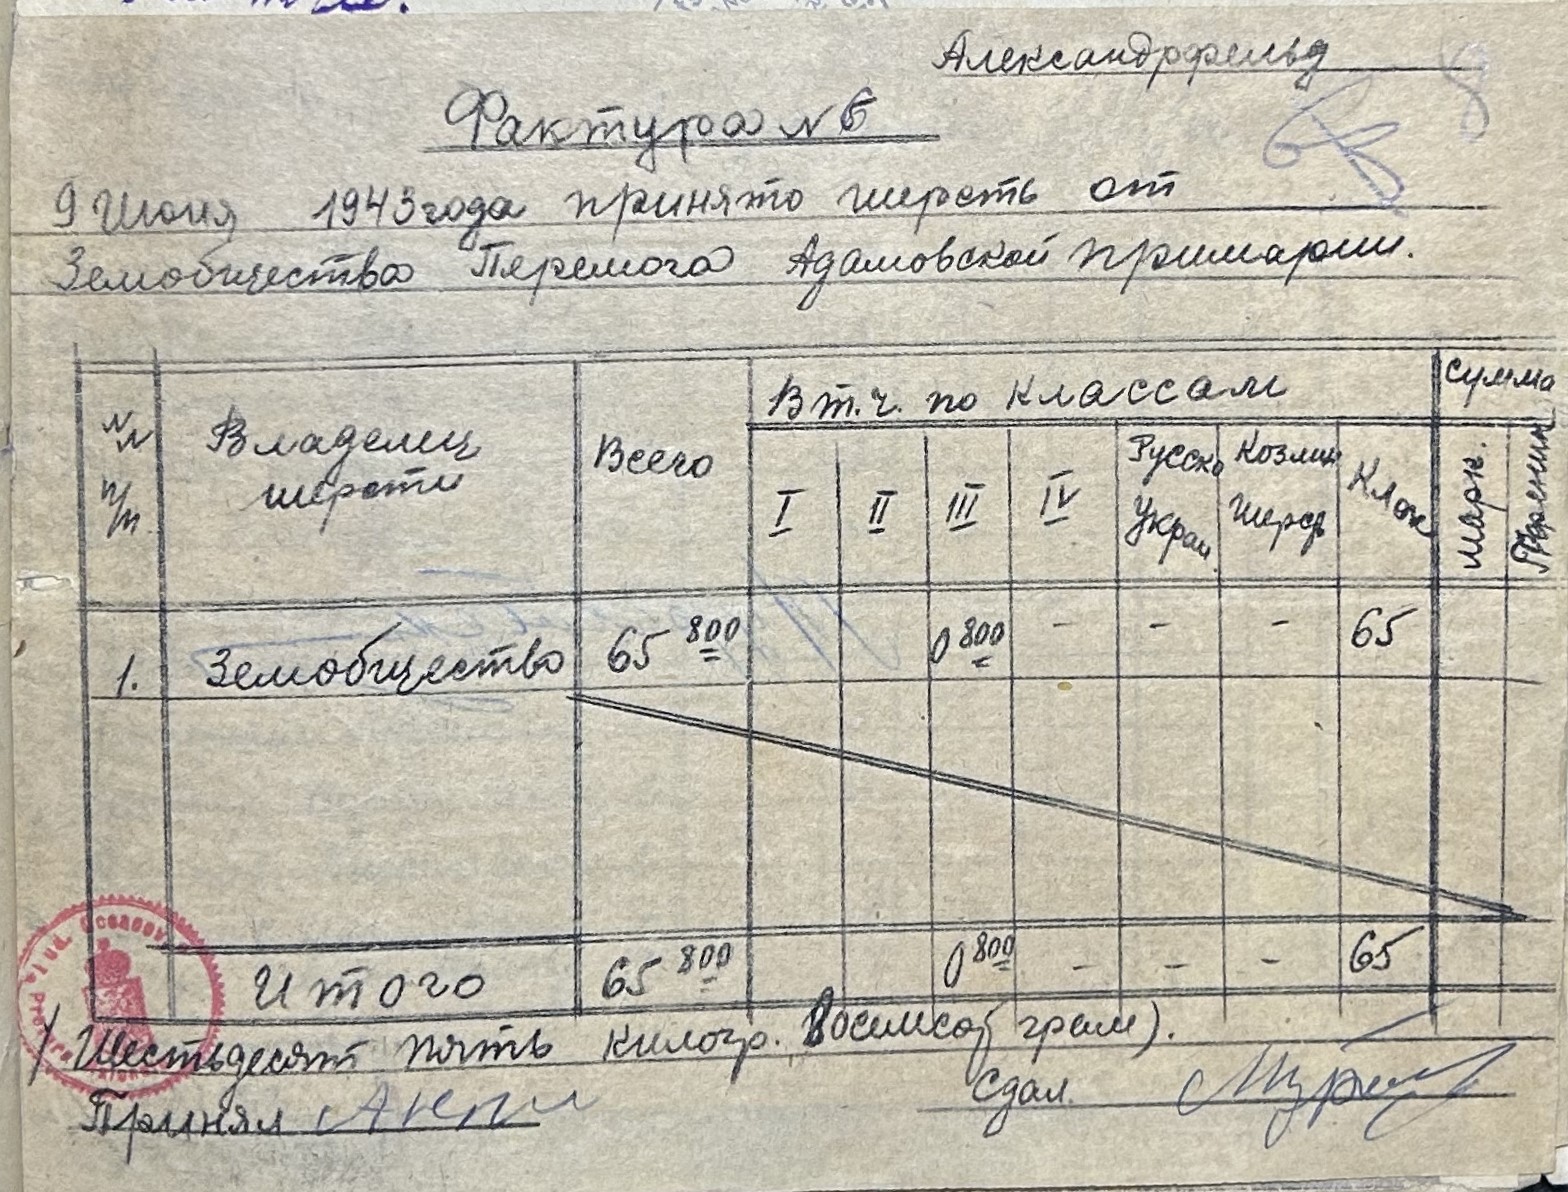 Александрфельд
Фактура № 6
9 Июня 1943 года принято шерсть от
Земобщества Перемога Адамовской примарии.
№№ п/п
Владелец шерсти
Всего
В т.ч. по классам
Сумма
I
II
III
IV
Русско Украи
Козлин шерсть
Клок
Марк.
1.
Земобщество
65 800
0 800
-
-
-
65
Итого
65 800
0 800
-
-
-
65
/Шестьдесят пять килогр. Восемсот грам).
Принял
Сдал